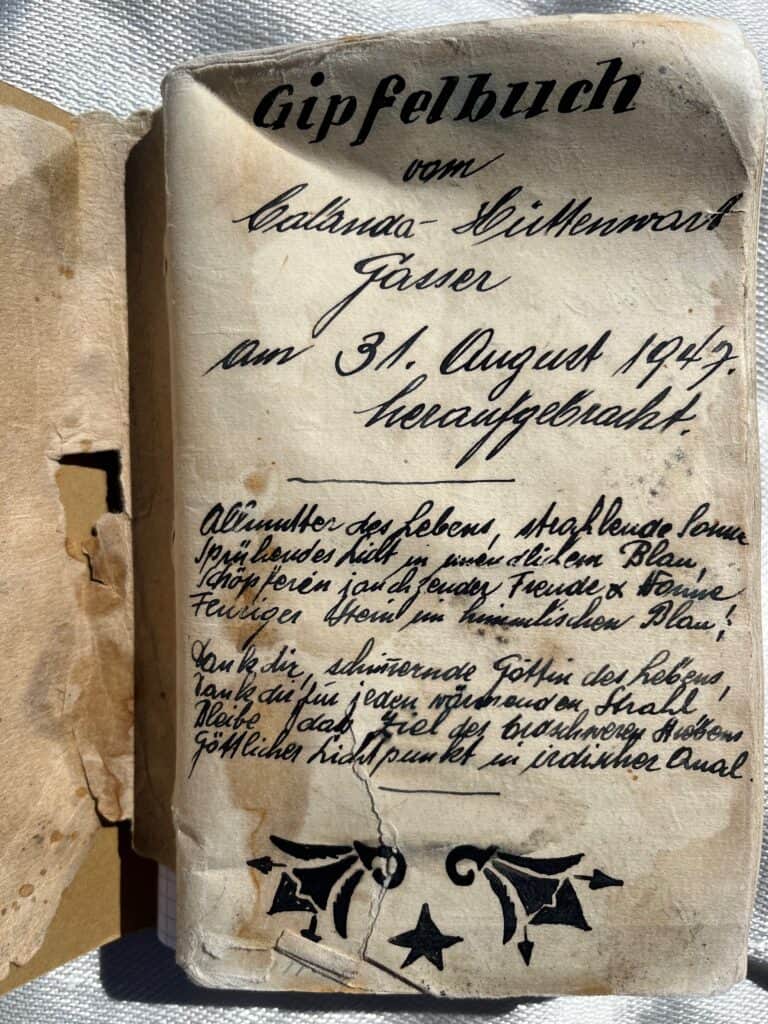 Gipfelbuch
vom
Calanda-Hüttenwart
Gasser
am 31. August 1947.
heraufgebracht.
Allmutter des Lebens, strahlende Sonne
Sprühendes Licht in unendlichem Blau,
Schöpferin jauchzender Freude & Wonne
Feuriger Stein im himmlischen Blau!
Dank dir, schimmernde Göttin des Lebens,
Dank dir für jeden wärmenden Strahl
Bleibe das Ziel des erdschweren Strebens
Göttlicher Lichtpunkt in irdischer Qual.